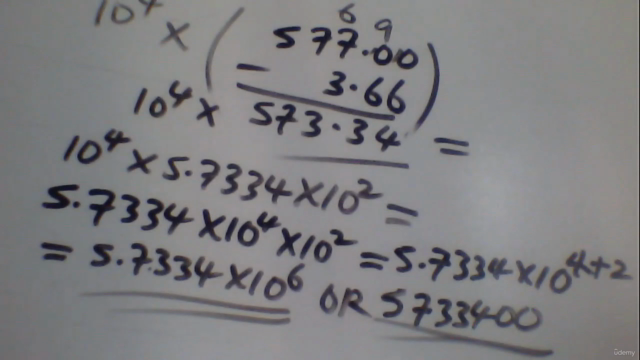 6 9
10⁴ × ( 577.00
- 3.66 )
10⁴ × 573.34 =
10⁴ × 5.7334 × 10² =
5.7334 × 10⁴ × 10² = 5.7334 × 10⁴⁺²
= 5.7334 × 10⁶ OR 5733400
Udemy